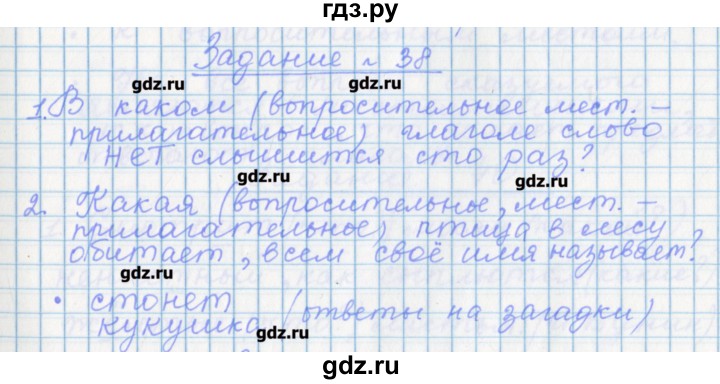 гдз.ру
Задание № 38
gdz.ru gdz.ru
1. В каком (вопросительное мест. –
прилагательное) глаголе слово
НЕТ слышится сто раз?
gdz.ru gdz.ru
2. Какая (вопросительные, мест. –
прилагательное) птица в лесу
обитает, всем своё имя называет?
gdz.ru
• стонет
кукушка (ответы на загадки)
gdz.ru
gdz.ru